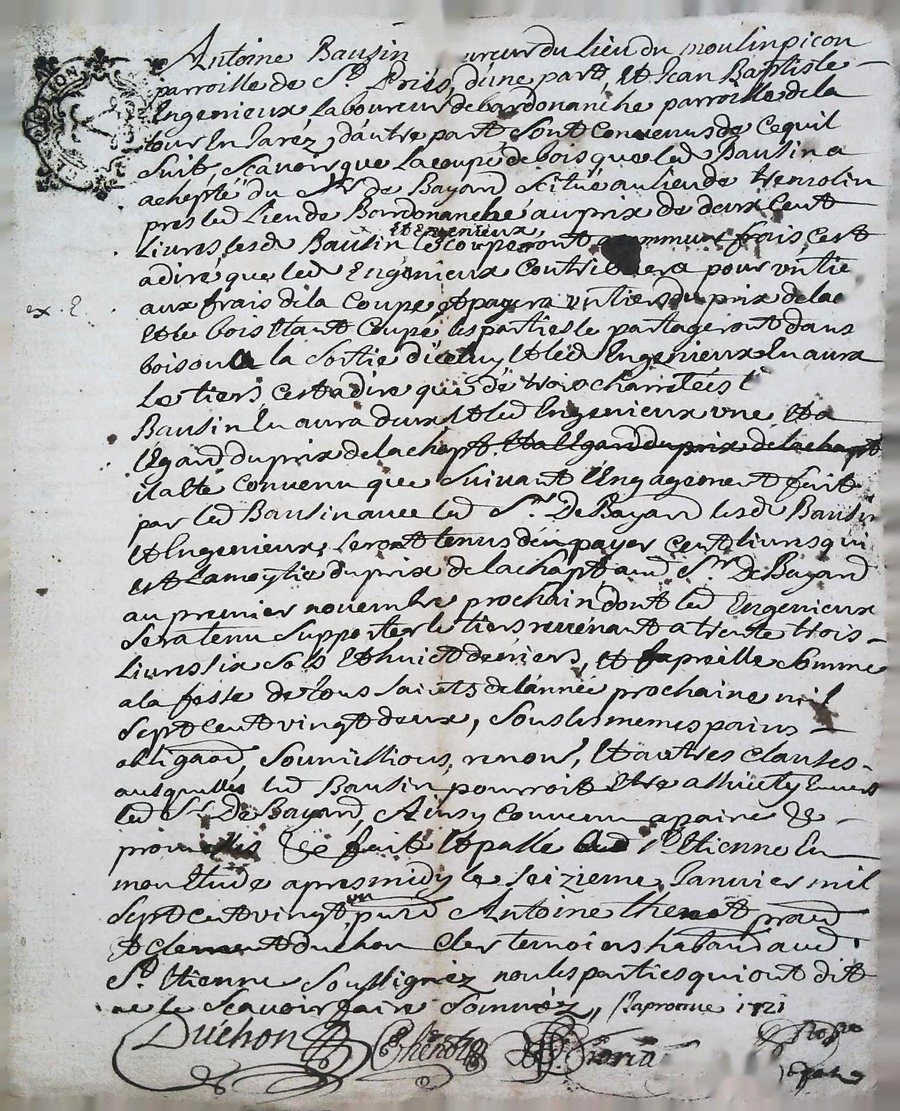 Antoine Bausin ureur du lieu du moulin picon
parroisse de St Priis, dune part, et Jean Baptiste
Engenieux Laboureur de bardonanche parroisse de la
tour En Jarez, dautre part Sont Convenus de Ce quil
Suit, Scavoir que La coupe de bois que led Bausin a
achepté du Sr De Bayard Scitué au lieu de
pres led Lieu de Bardonanche au prix de deux Cent
Livres lesd Bausin et Engenieux le couperont a commun frais cest
adire que led Engenieux Contribuera pour un tie
aux frais dela Coupe et payera un tiers du prix dela
ex. E.
Et le bois Etant Coupé les parties le partageront dans
bois ou a la Sortie diceluy Et led Engenieux En aura
Le tiers cest adire que de trois charretées l
Bausin En aura deux Et led Engenieux une Et a
lEgard du prix de lachapt Et a lEgard du prix de lachapt
il a Eté Convenu que Suivant lEngagement fait
par led Bausin avec led Sr De Bayard lesd Bausin
Et Engenieux Seront tenus den payer Cent livres qui
est La moytie du prix de lachapt aud Sr De Bayard
au premier novembre prochain dont led Engenieux
Sera tenu Supporter le tiers revenant a trente trois
Livres six Sols Et huict deniers, et pareille Somme
a la feste de Tous Saints de lannée prochaine mil
Sept Cent vingt deux, Sous les memes pains
obligaon, Soumissions, renons, Et autres Clauses
ausquelles led Bausin pourroit Etre assuiety Envers
led Sr De Bayard, Ainsy Convenu a paine &
promesses &c fait Et passé aud St Etienne En
mon Etude apres midy le Seizieme Janvier mil
Sept Cent vingt un Antoine thenot praen
Et Clement duchon Cler temoins habans aud
St Etienne Soussignéz non les parties qui ont dit
ne le Scavoir faire Sommez, 1721
Duchon Thenot